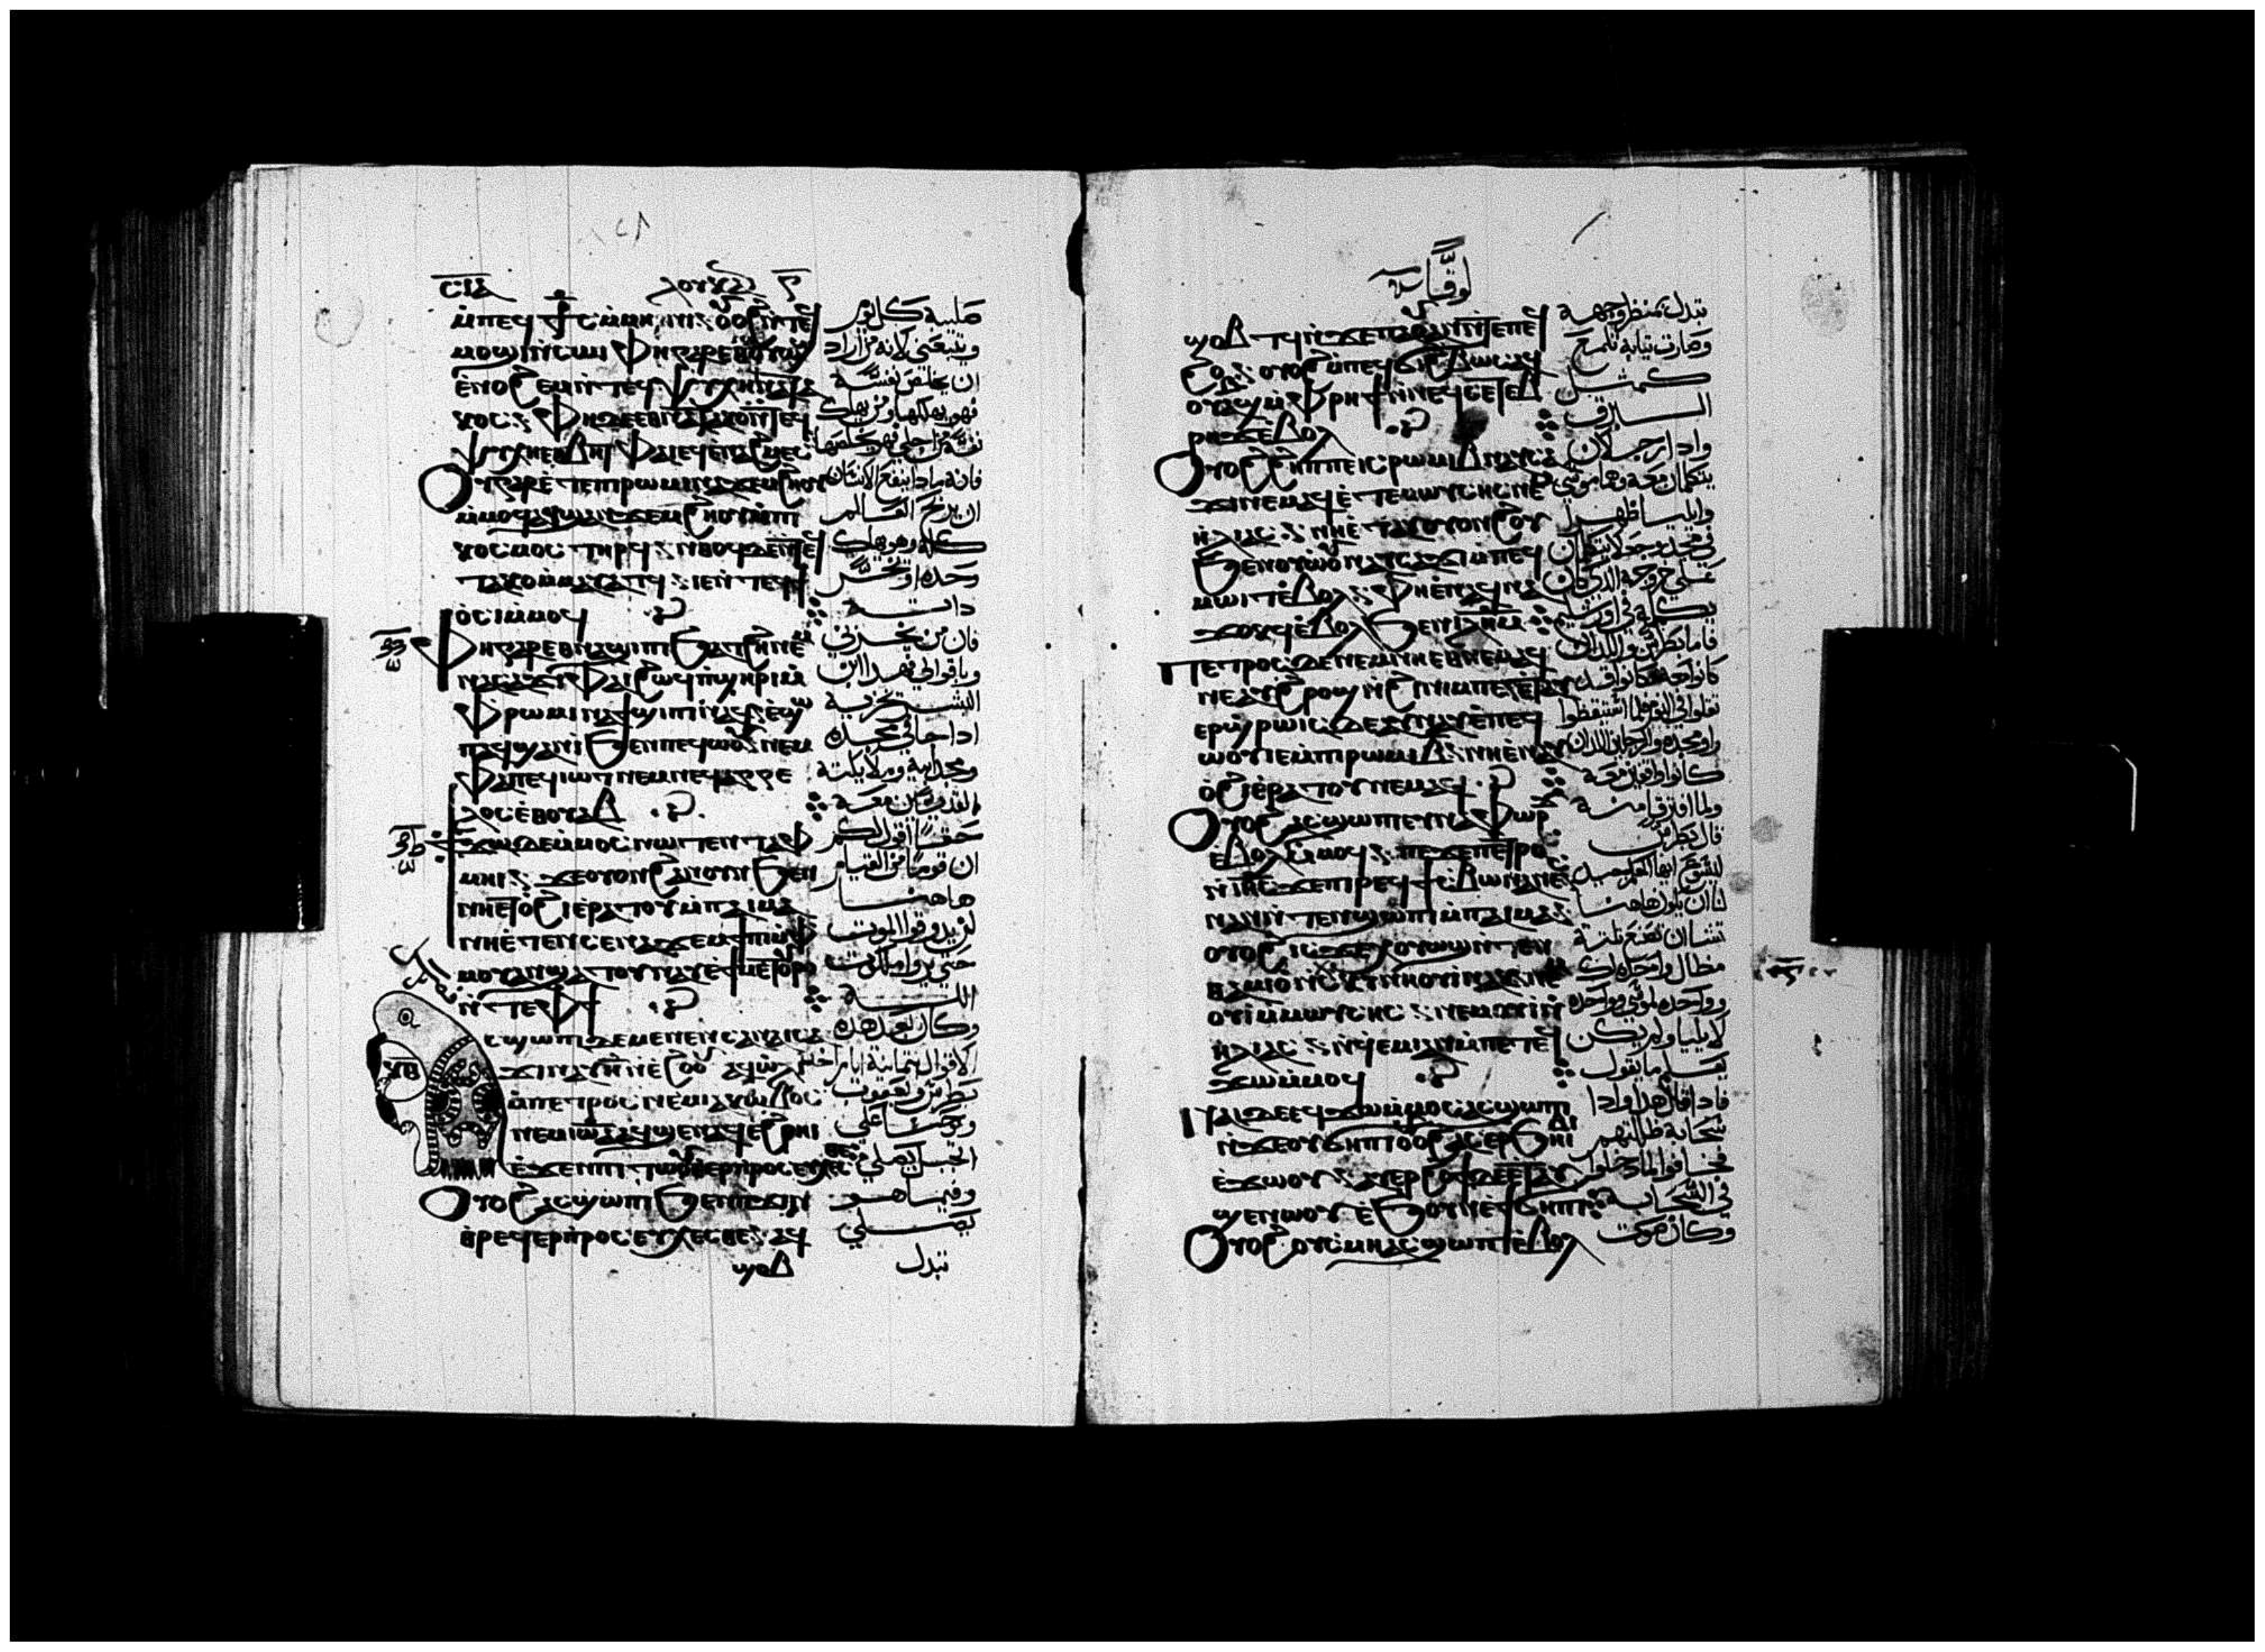 ⲗⲟⲩⲕⲁⲥ
ⲙⲟϣⲓ ⲛⲥⲱⲓ ⲫⲏ ⲅⲁⲣ ⲉⲑⲟⲩⲱϣ
ⲉⲛⲟϩⲉⲙ ⲛⲧⲉϥⲯⲩⲭⲏ ⲛⲁⲧⲁ
ⲕⲟⲥ ⲫⲏ ⲇⲉ ⲉⲑⲛⲁⲧⲁⲕⲟ ⲛⲧⲉϥ
ⲯⲩⲭⲏ ⲉⲑⲃⲏⲧ ⲫⲁⲓ ⲉϥⲉⲛⲁϩⲙⲉⲥ
ⲟⲩ ⲅⲁⲣ ⲉⲧⲉ ⲡⲓⲣⲱⲙⲓ ⲛⲁϫⲉⲙϩⲏⲟⲩ
ⲙⲙⲟϥ ⲁϥϣⲁⲛϫⲉⲙϩⲏⲟⲩ ⲙⲡⲓ
ⲕⲟⲥⲙⲟⲥ ⲧⲏⲣϥ ⲛⲑⲟϥ ⲇⲉ ⲛⲧⲉϥ
ⲧⲁⲕⲟ ⲙⲙⲁⲩⲁⲧϥ ⲓⲉ ⲛⲧⲉϥϯ
ⲟⲥⲓ ⲙⲙⲟϥ
ⲫⲏ ⲅⲁⲣ ⲉⲑⲛⲁϣⲓⲡⲓ ϧⲁⲧϩⲏ ⲛⲉⲙ
ⲛⲁⲥⲁϫⲓ ⲫⲁⲓ ϩⲱϥ ⲡϣⲏⲣⲓ ⲙ
ⲫⲣⲱⲙⲓ ⲛⲁϯϣⲓⲡⲓ ⲛⲁϥ ⲉϣⲱⲡ
ⲁϥϣⲁⲛⲓ ϧⲉⲛ ⲡⲉϥⲱⲟⲩ ⲛⲉⲙ
ⲫⲁ ⲡⲉϥⲓⲱⲧ ⲛⲉⲙ ⲛⲉϥⲁⲅⲅⲉ
ⲗⲟⲥ ⲉⲑⲟⲩⲁⲃ
ϯϫⲱ ⲇⲉ ⲙⲙⲟⲥ ⲛⲱⲧⲉⲛ ⲧⲁⲫ
ⲙⲏⲓ ϫⲉ ⲟⲩⲟⲛ ϩⲁⲛⲟⲩⲟⲛ ϧⲉⲛ
ⲛⲏ ⲉⲧⲟϩⲓ ⲉⲣⲁⲧⲟⲩ ⲙⲡⲁⲓⲙⲁ
ⲛⲏ ⲉⲧⲉ ⲛⲥⲉⲛⲁϫⲉⲙϯⲡⲓ ⲙⲫ
ⲙⲟⲩ ⲁⲛ ϣⲁⲧⲟⲩⲛⲁⲩ ⲉϯⲙⲉⲧⲟⲩⲣⲟ
ⲛⲧⲉ ⲫϯ
ⲁⲥϣⲱⲡⲓ ⲇⲉ ⲙⲉⲛⲉⲛⲥⲁ ⲛⲁⲓⲥⲁ
ϫⲓ ⲛⲁⲩ ⲏ ⲛⲉϩⲟⲟⲩ ⲁϥⲱⲗⲓ
ⲙⲡⲉⲧⲣⲟⲥ ⲛⲉⲙ ⲓⲁⲕⲱⲃⲟⲥ
ⲛⲉⲙ ⲓⲱⲁ ⲁϥϣⲉⲛⲁϥ ⲉϩⲣⲏⲓ
ⲉϫⲉⲛ ⲡⲓⲧⲱⲟⲩ ⲉⲉⲣⲡⲣⲟⲥⲉⲩⲭⲉⲥⲑⲉ
ⲟⲩⲟϩ ⲁⲥϣⲱⲡⲓ ϧⲉⲛ ⲡϫⲓⲛ
ⲑⲣⲉϥⲉⲣⲡⲣⲟⲥⲉⲩⲭⲉⲥⲑⲉ ⲁϥ
ϣⲟⲃ
ويتبعني لانه من اراد
ان يخلص نفسه
فهو يهلكها ومن يهلك
نفسه من اجلي فهو يخلصها
فانه ماذا ينفع الانسان
ان يربح العالم
كله وهو يهلك
وحده او يخسر
ذاته
فان من يخزني
وباقوالي فهذا ابن
البشر يخزيه
اذا جا في مجده
ومجد ابيه وملايكته
القديسين
حقا اقول لكم
ان قوما من القيام
هاهنا
لن يذوقوا الموت
حتى يروا ملكوت
الله
وكان بعد هذه
الاقوال بثمانية ايام اخذ
بطرس ويعقوب
ويوحنا
الجبل ليصلي
وفيما هو
يصلي
تبدل
لوقا
ϣⲟⲃⲧϥ ⲛϫⲉ ⲡⲥⲙⲟⲧ ⲛⲧⲉ ⲡⲉϥ
ϩⲟ ⲟⲩⲟϩ ⲛⲉϥϩⲃⲱⲥ ⲁⲩ
ⲟⲩⲃⲁϣ ⲙⲫⲣⲏϯ
ⲟⲩⲟϩ ϩⲏⲡⲡⲉ ⲓⲥ ⲣⲱⲙⲓ ⲃ ⲛⲁⲩⲥⲁ
ϫⲓ ⲛⲉⲙⲁϥ ⲉⲧⲉ ⲙⲱⲩⲥⲏⲥ ⲛⲉⲙ
ⲏⲗⲓⲁⲥ ⲛⲏ ⲉⲧⲁⲩⲟⲩⲟⲛϩⲟⲩ
ϧⲉⲛ ⲟⲩⲱⲟⲩ ⲛⲁⲩⲥⲁϫⲓ ⲙⲡⲉϥ
ⲙⲱⲓⲧ ⲉⲃⲟⲗ ⲫⲏ ⲉⲛⲁϥⲛⲁ
ϫⲟⲕϥ ⲉⲃⲟⲗ ϧⲉⲛ ⲓⲗⲏⲙ
ⲡⲉⲧⲣⲟⲥ ⲇⲉ ⲛⲉⲙ ⲛⲏ ⲉⲑⲛⲉⲙⲁϥ
ⲛⲉⲁⲩϩⲣⲟϣ ⲛϩⲓⲛⲓⲙ ⲡⲉ ⲉⲧⲁⲩ
ⲉⲣϣⲣⲱⲓⲥ ⲇⲉ ⲁⲩⲛⲁⲩ ⲉⲡⲉϥ
ⲱⲟⲩ ⲛⲉⲙ ⲡⲓⲣⲱⲙⲓ ⲃ ⲛⲏ ⲉⲛⲁⲩ
ⲟϩⲓ ⲉⲣⲁⲧⲟⲩ ⲛⲉⲙⲁϥ
ⲟⲩⲟϩ ⲁⲥϣⲱⲡⲓ ⲉⲩⲛⲁⲫⲱⲣϫ
ⲉⲃⲟⲗ ⲙⲙⲟϥ ⲡⲉϫⲉ ⲡⲉⲧⲣⲟⲥ
ⲛⲓⲏⲥ ϫⲉ ⲡⲓⲣⲉϥϯⲥⲃⲱ ⲛⲁⲛⲉⲥ
ⲛⲁⲛ ⲛⲧⲉⲛϣⲱⲡⲓ ⲙⲡⲁⲓⲙⲁ
ⲟⲩⲓ ⲙⲙⲱⲩⲥⲏⲥ ⲛⲉⲙ ⲟⲩⲓ ⲛ
ⲏⲗⲓⲁⲥ ⲛϥⲉⲙⲓ ⲁⲛ ⲙⲡⲉⲧⲉϥ
ϫⲱ ⲙⲙⲟϥ
ⲛⲁⲓ ⲇⲉ ⲉϥϫⲱ ⲙⲙⲟⲥ ⲁⲥϣⲱⲡⲓ
ⲛϫⲉ ⲟⲩϭⲏⲡⲓ ⲟⲩⲟϩ ⲁⲥⲉⲣϧⲏⲓⲃⲓ
ⲉϫⲱⲟⲩ ⲁⲩⲉⲣϩⲟϯ ⲇⲉ ⲉⲧⲁⲩ
ϣⲉⲛⲱⲟⲩ ⲉϧⲟⲩⲛ ⲉϯϭⲏⲡⲓ
ⲟⲩⲟϩ ⲟⲩⲥⲙⲏ ⲁⲥϣⲱⲡⲓ ⲉⲃⲟⲗ
تبدل منظر وجهه
وصارت ثيابه تلمع
كمثل
البرق
واذا رجلان
يتكلمان معه وهما موسى
وايليا ظهرا
في مجد
يكمله في اورشليم
فاما بطرس واللذان
كانوا معه فكانوا قد
ثقلوا في النوم فلما استيقظوا
راوا مجده والرجلين اللذان
كانوا واقفين معه
ولما افترقا منه
قال بطرس
ليسوع ايها المعلم جيد
لنا ان نكون هاهنا
تشا ان نصنع ثلثة
مظال واحدة لك
وواحدة لموسى وواحدة
لايليا ولم يكن
يعلم ما يقول
فاذ قال هذا واذا
سحابة ظللتهم
فخافوا لما دخلوا
في السحابة
وكان صوت